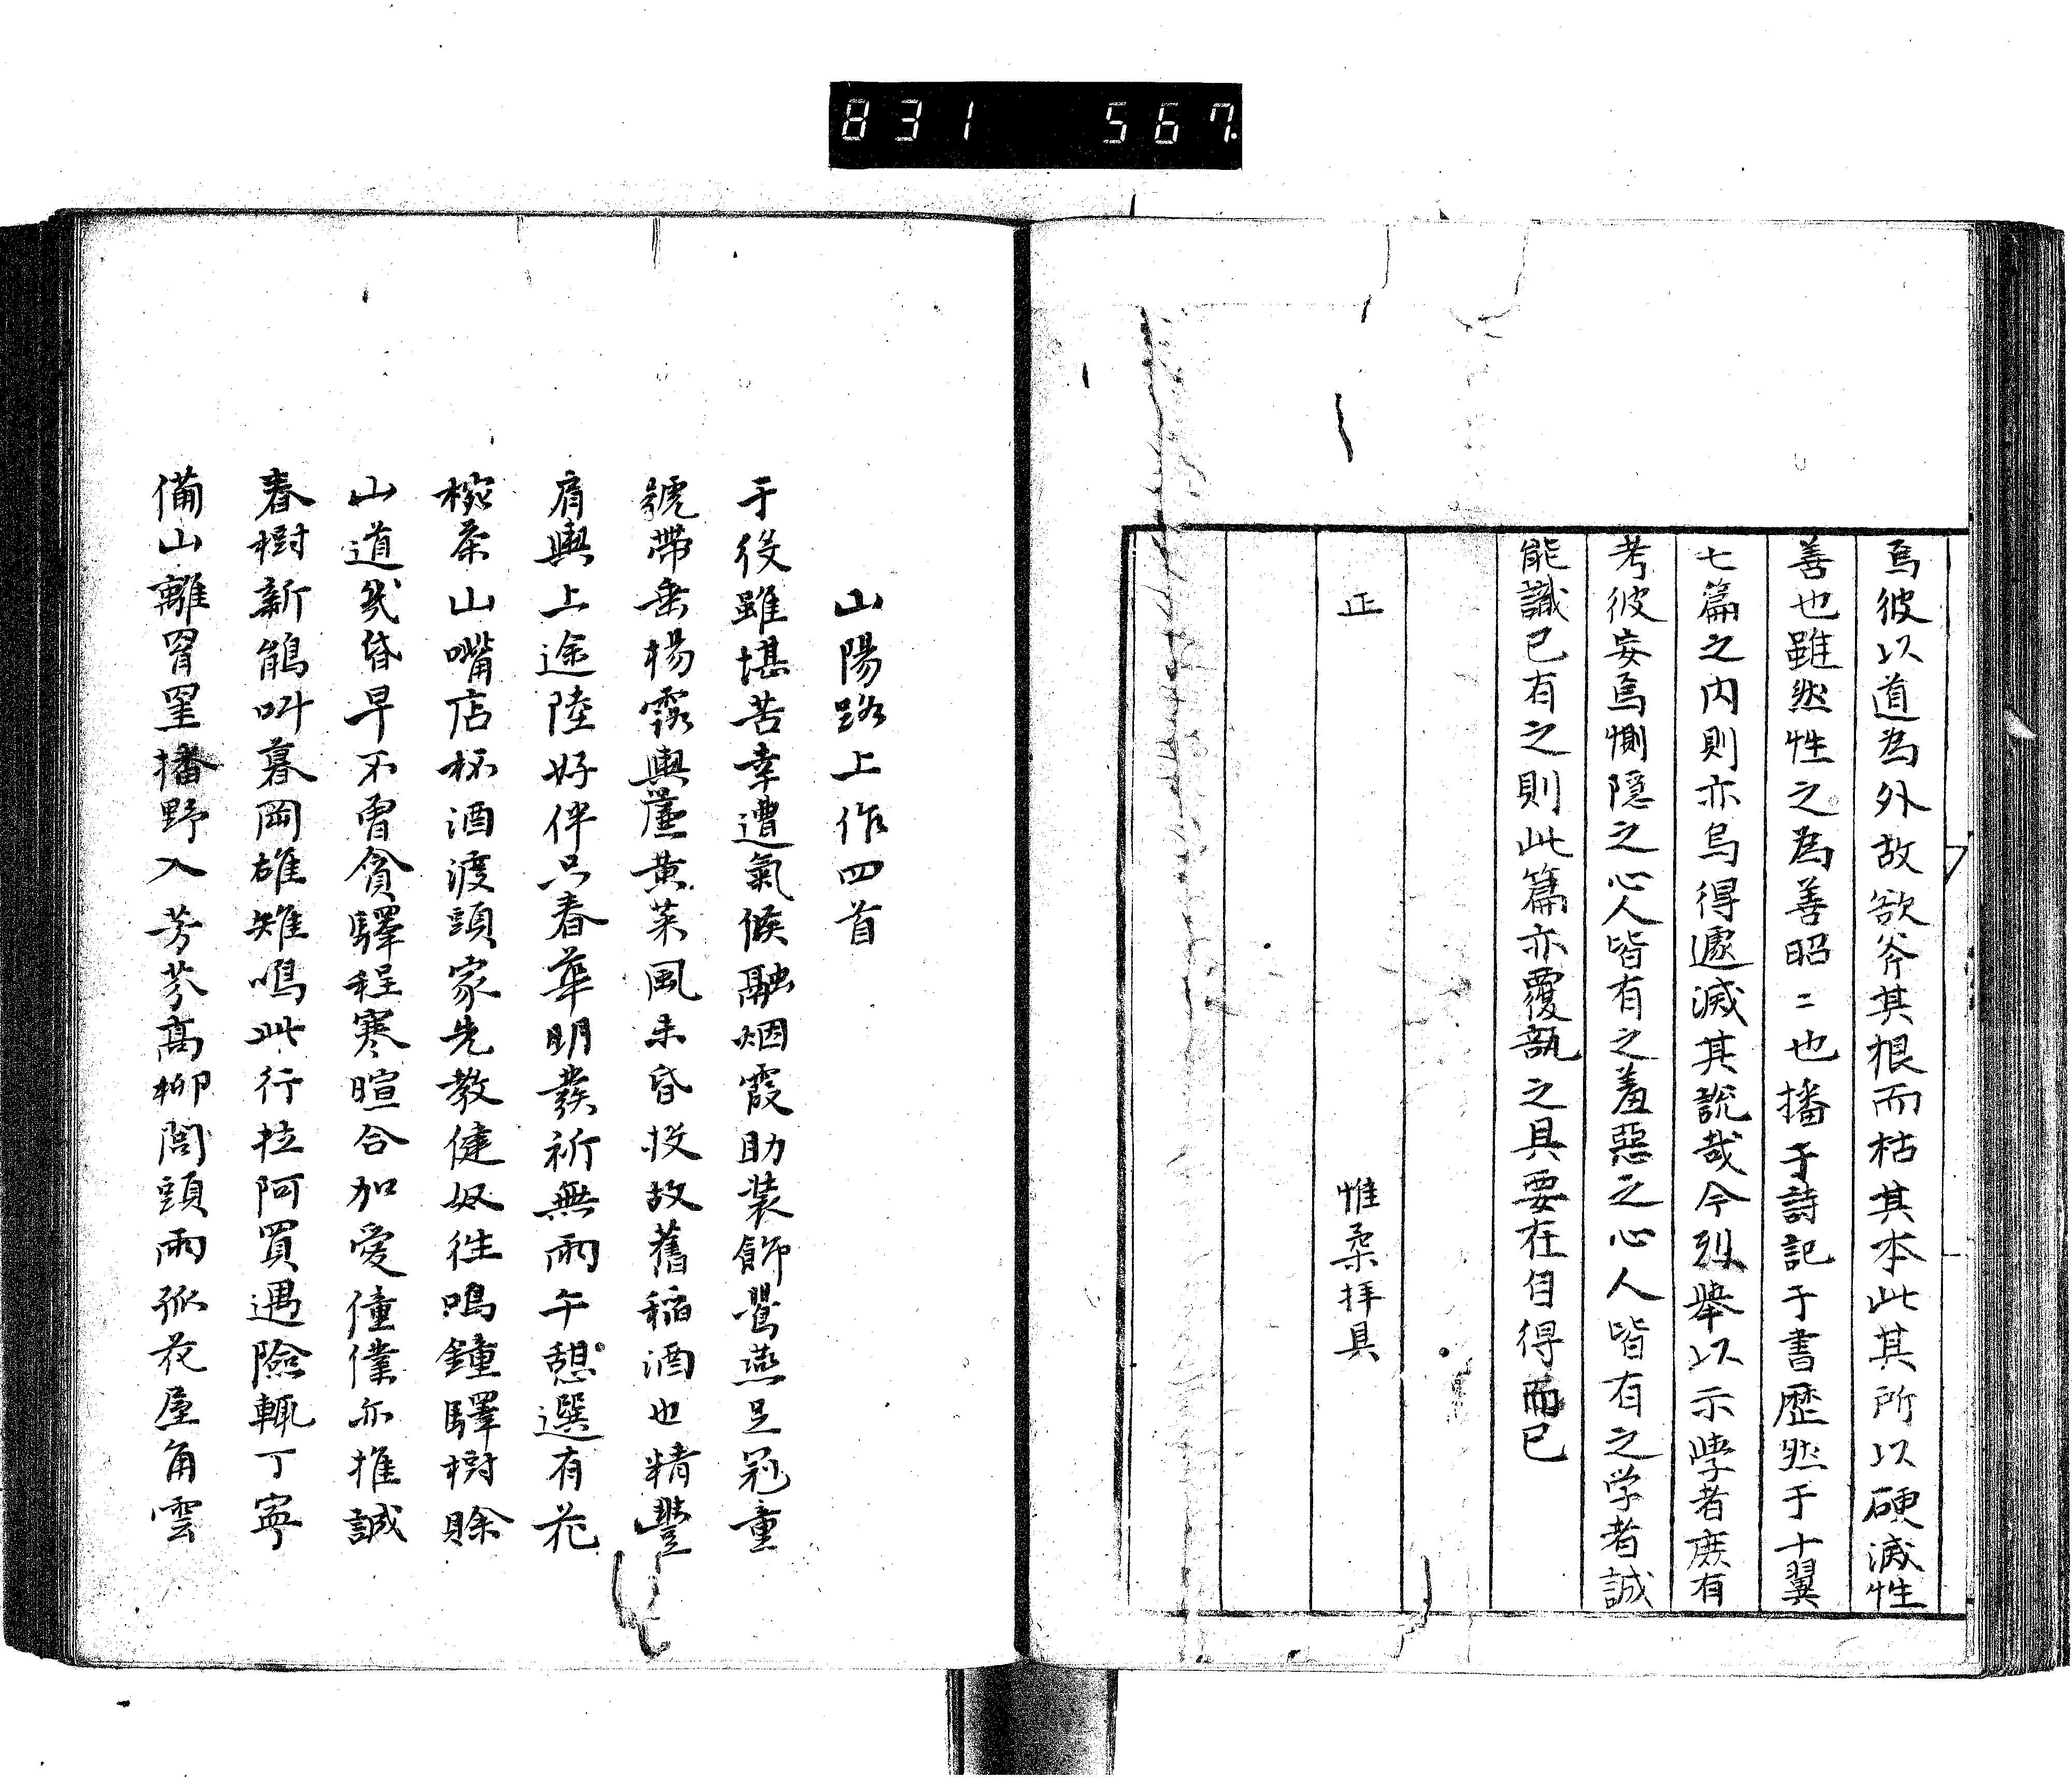 831 567
焉彼以道為外故欲斧其根而枯其本此其所以硬滅性
善也雖然性之為善昭〻也播于詩記于書歴然于十翼
七篇之内則亦烏得遽滅其説哉今烈舉以示學者庶有
考彼妄焉惻隠之心人皆有之羞惡之心人皆有之学者誠
能識已有之則此篇亦覆瓿之具要在自得而已
正 惟柔拝具
山陽路上作四首
于役雖堪苦幸遭氣候融烟霞助装飾鸎燕足冠童
號帶垂楊露輿簾黄菜風未昏投故舊稲酒也精豐
肩輿上途陸好伴只春華明發祈無雨午憩選有花
椀茶山嘴店杯酒渡頭家先教健奴往鳴鐘驛樹賒
山道幾昏早不曽貪驛程寒暄合加愛僮僕亦推誠
春樹新鵑叫暮岡雄雉鳴此行拉阿買遇險輒丁寧
備山離罥罣播野入芳芬髙柳閭頭雨孤花屋角雲